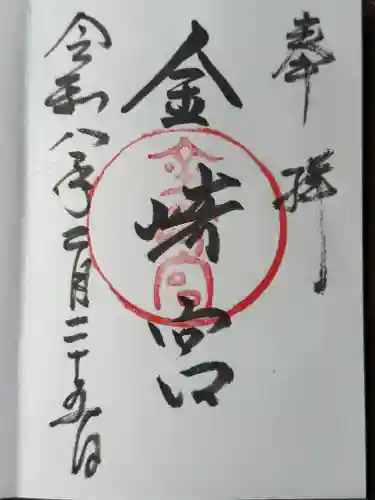 奉拝
金崎宮
令和八年二月二十五日
金崎宮